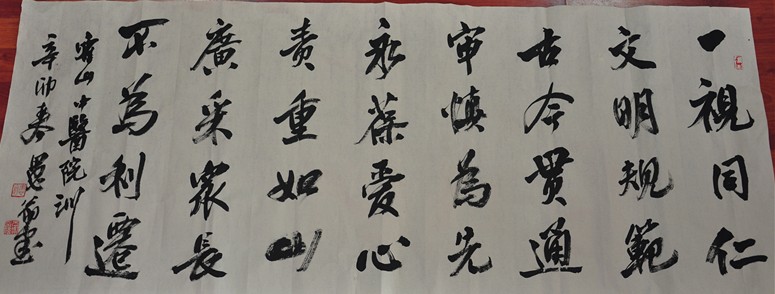 一視同仁
文明規範
古今贯通
审慎為先
永葆愛心
责重如山
廣采衆長
不為利遷
山中醫院训
辛卯春愚翁書